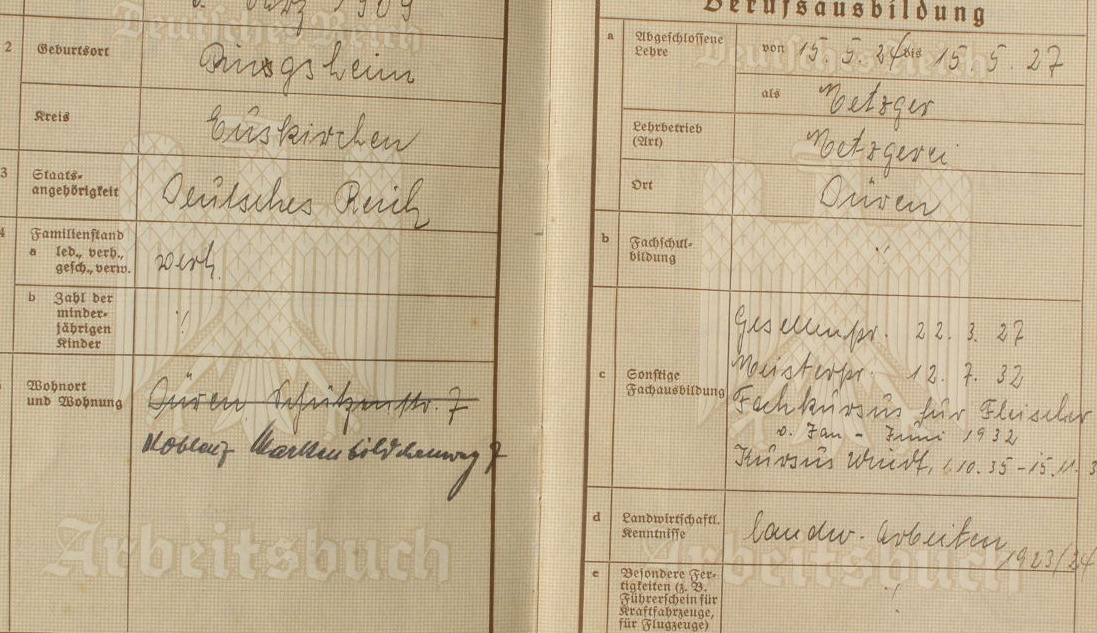 März 1909
2 Geburtsort
Kreis
Euskirchen
3 Staats-
angehörigkeit
Deutsches Reich
4 Familienstand
a led., verh.,
gesch., verw.
verh.
b Zahl der
minder-
jährigen
Kinder
·/·
Wohnort
und Wohnung
Düren Schützenstr. 7
Koblenz Markenbildchenweg 7
Arbeitsbuch
Deutsches Reich
Berufsausbildung
a Abgeschlossene
Lehre
von 15. 5. 24 bis 15 5. 27
als Metzger
Lehrbetrieb
(Art)
Metzgerei
Ort
Düren
b Fachschul-
bildung
·/·
c Sonstige
Fachausbildung
Gesellenpr. 22. 3. 27
Meisterpr. 12. 7. 32
Fachkursus für Fleischer
v. Jan - Juni 1932
Kursus 1.10.35 - 15.11. 3
d Landwirtschaftl.
Kenntnisse
landw. Arbeiten 1923/24
e Besondere Fer-
tigkeiten (z. B.
Führerschein für
Kraftfahrzeuge,
für Flugzeuge)
·/·
Deutsches Reich
Arbeitsbuch